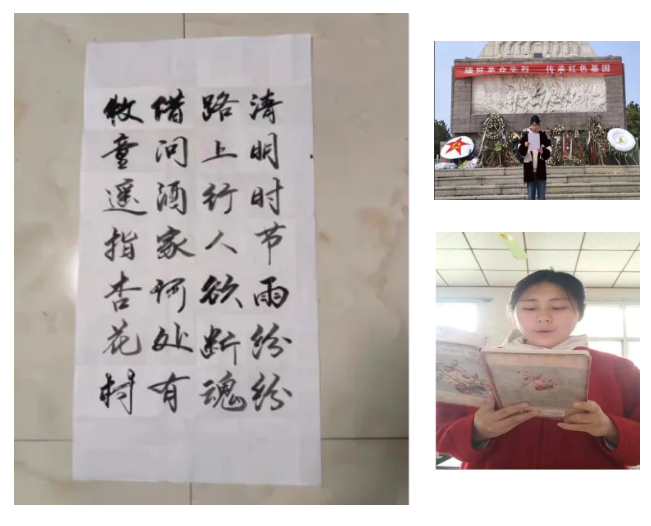 清明时节雨纷纷
路上行人欲断魂
借问酒家何处有
牧童遥指杏花村
缅怀革命先烈 传承红色基因